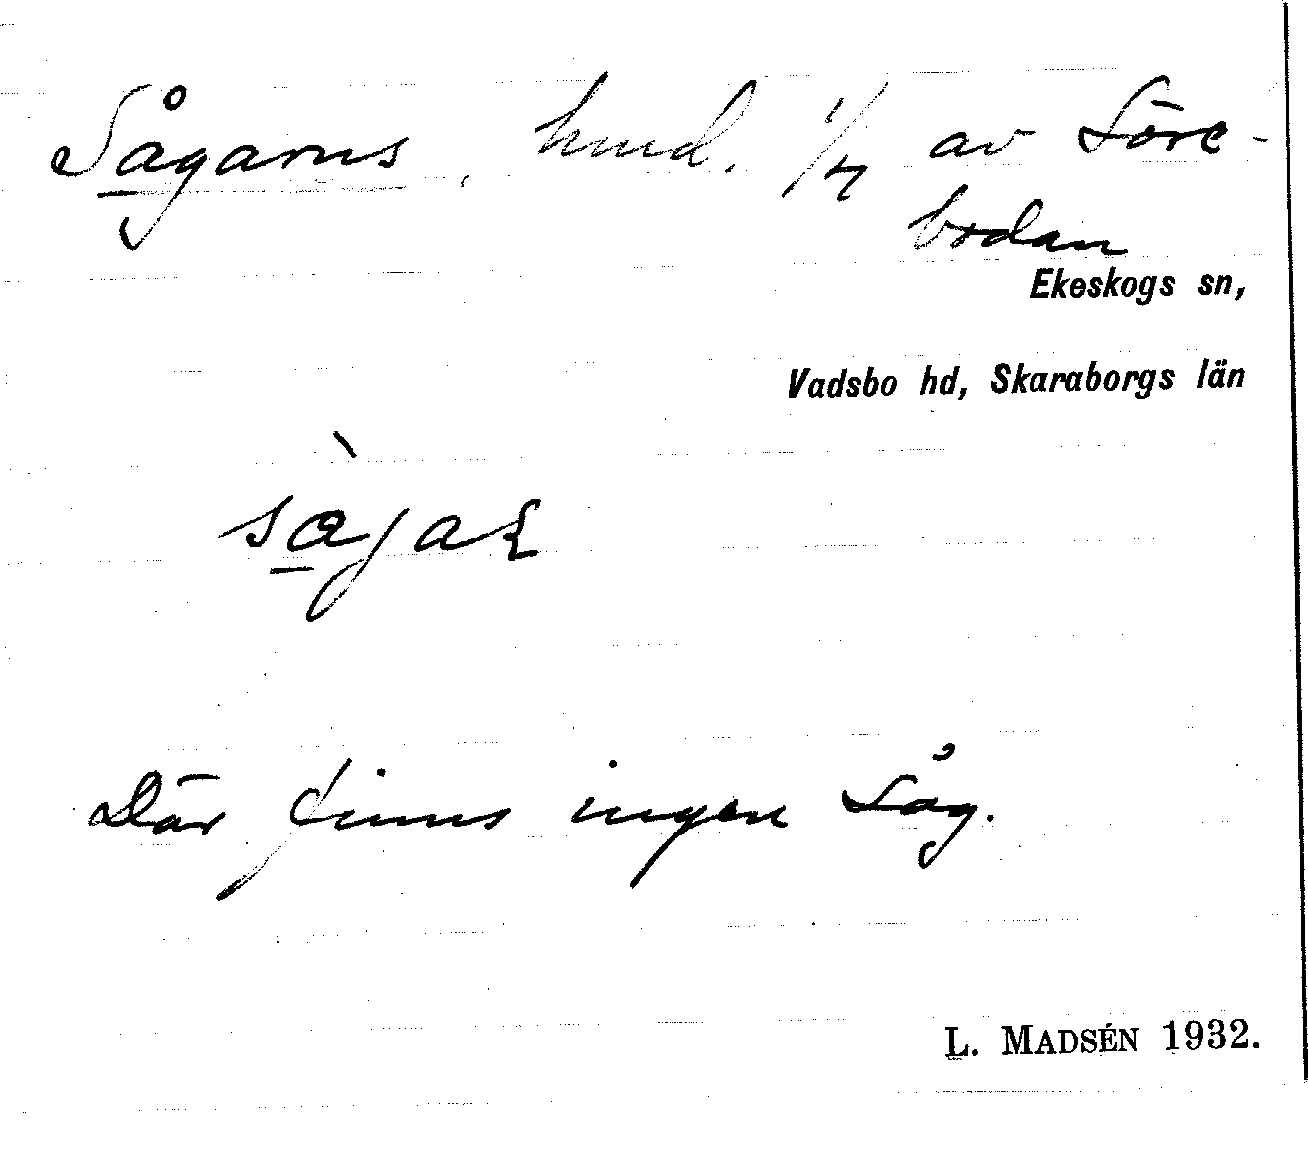 Sågarns, hmd. 1/4 av Söre-
bodan
Ekeskogs sn,
Vadsbo hd, Skaraborgs län
Där finns ingen såg.
L. MADSÉN 1932.